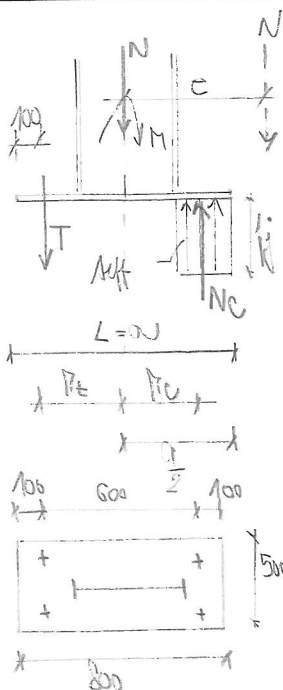 N N
e
100
M
T
Aeff
fj
Nc
L = 800
rt rc
a/2
100 600 100
500
800